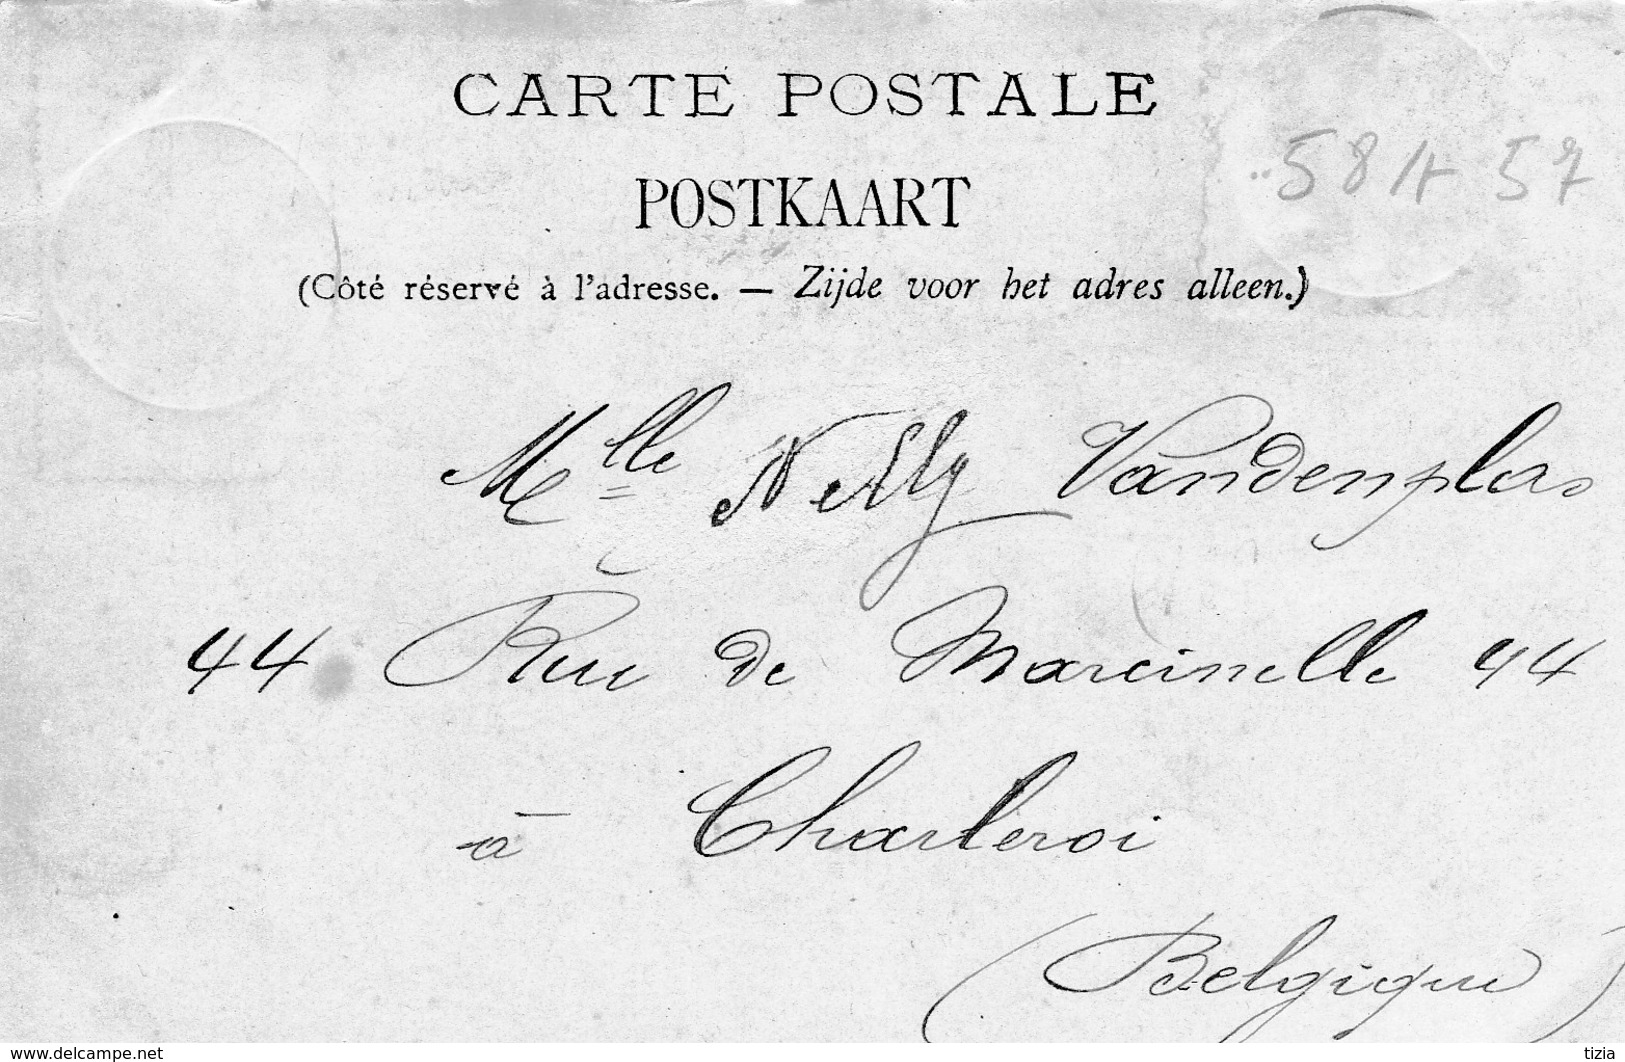 CARTE POSTALE
58 4 57
POSTKAART
(Côté réservé à l'adresse. — Zijde voor het adres alleen.)
Mlle Nelly Vandenplas
44 Rue de Marcinelle 44
à Charleroi
(Belgique)
www.delcampe.net tizia